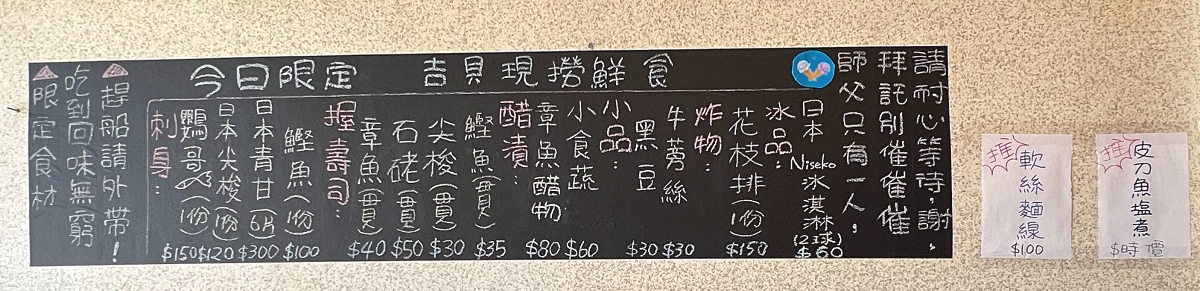 ▲限定食材
吃到回味無窮
▲趕船請外帶!
今日限定 吉貝現撈鮮食
刺身:
鸚哥(1份) $150
日本尖梭(1份) $120
日本青甘(5片) $300
鰹魚(1份) $100
握壽司:
章魚(貫) $40
石硓(貫) $50
尖梭(貫) $30
鰹魚(貫) $35
醋漬:
章魚醋物 $80
小食蔬 $60
小品:
黑豆 $30
牛蒡絲 $30
炸物:
花枝排(1份) $150
冰品:
日本Niseko冰淇淋(2球) $60
師父只有一人,
拜託別催催催
請耐心等待,謝,
推
軟絲麵線
$100
推
皮刀魚塩煮
$時價